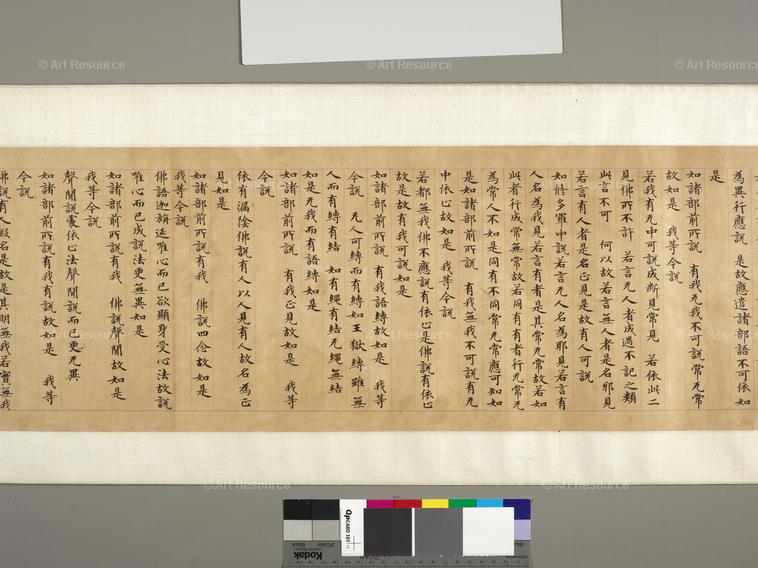 為異行應說 是故應遣諸部語不可依如
是
如諸部前所說 有我无我不可說常无常
故如是 我等今說
若我有无中可說成斷見常見 若依此二
見佛所不許 若言无人者成過不記之類
此言不可 何以故若言無人者是名邪見
若言有人者是名正見是故有人可說
如修多羅中說若言无人名為邪見若言有
人名為我見若言有者是其常无常故若如
此者行成常無常故若同有有者行无常无
為常人不如是同有不同无常應可知如
是如諸部所說 有我無我不可說有无
中依心故如是 我等今說
若都無我佛不應說有依心是佛說有依心
故是故有我可說如是
如諸部前所說 有我語縛故如是 我等
今說 无人可縛而有縛如王獄縛雖無
人而有縛有結 如有繩有結无繩無結
如是无我而有語縛如是
如諸部前所說 有我正見故如是 我等
今說
依有漏陰佛說有人以人見有人故名為正
見如是
如諸部前所說有我 佛說四念故如是
我等今說
佛語迦旃延唯心而已欲顯身受心法故說
唯心而已成說法更無異如是
如諸部前所說有我 佛說聲聞故如是
我等今說
聲聞說衆依心法聲聞說而已更无異
如諸部前所說有我有說故如是 我等
今說
佛說有人假名是故是其明無我若實無我
© Art Resource
© Art Resource
© Art Resource
© Art Resource
© Art Resource
© Art Resource
© Art Resource
© Art Resource
QPCARD 101
Kodak
3/Color
Black